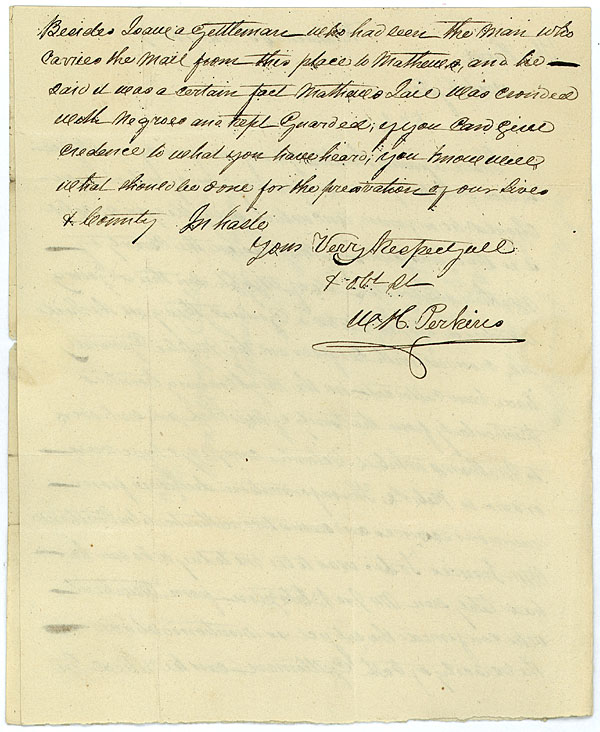 Besides I saw a Gettleman who had seen the man who
Carries the Mail from this place to Mathews, and he —
said it was a certain fact Mathews Jail was crowded
with Negroes and kept Guarded; if you can give
credence to what you have heard; you know well
what should be done for the preservation of our lives
& County In haste
Yours Verry Respectfull
& Obt St
W. H. Perkins